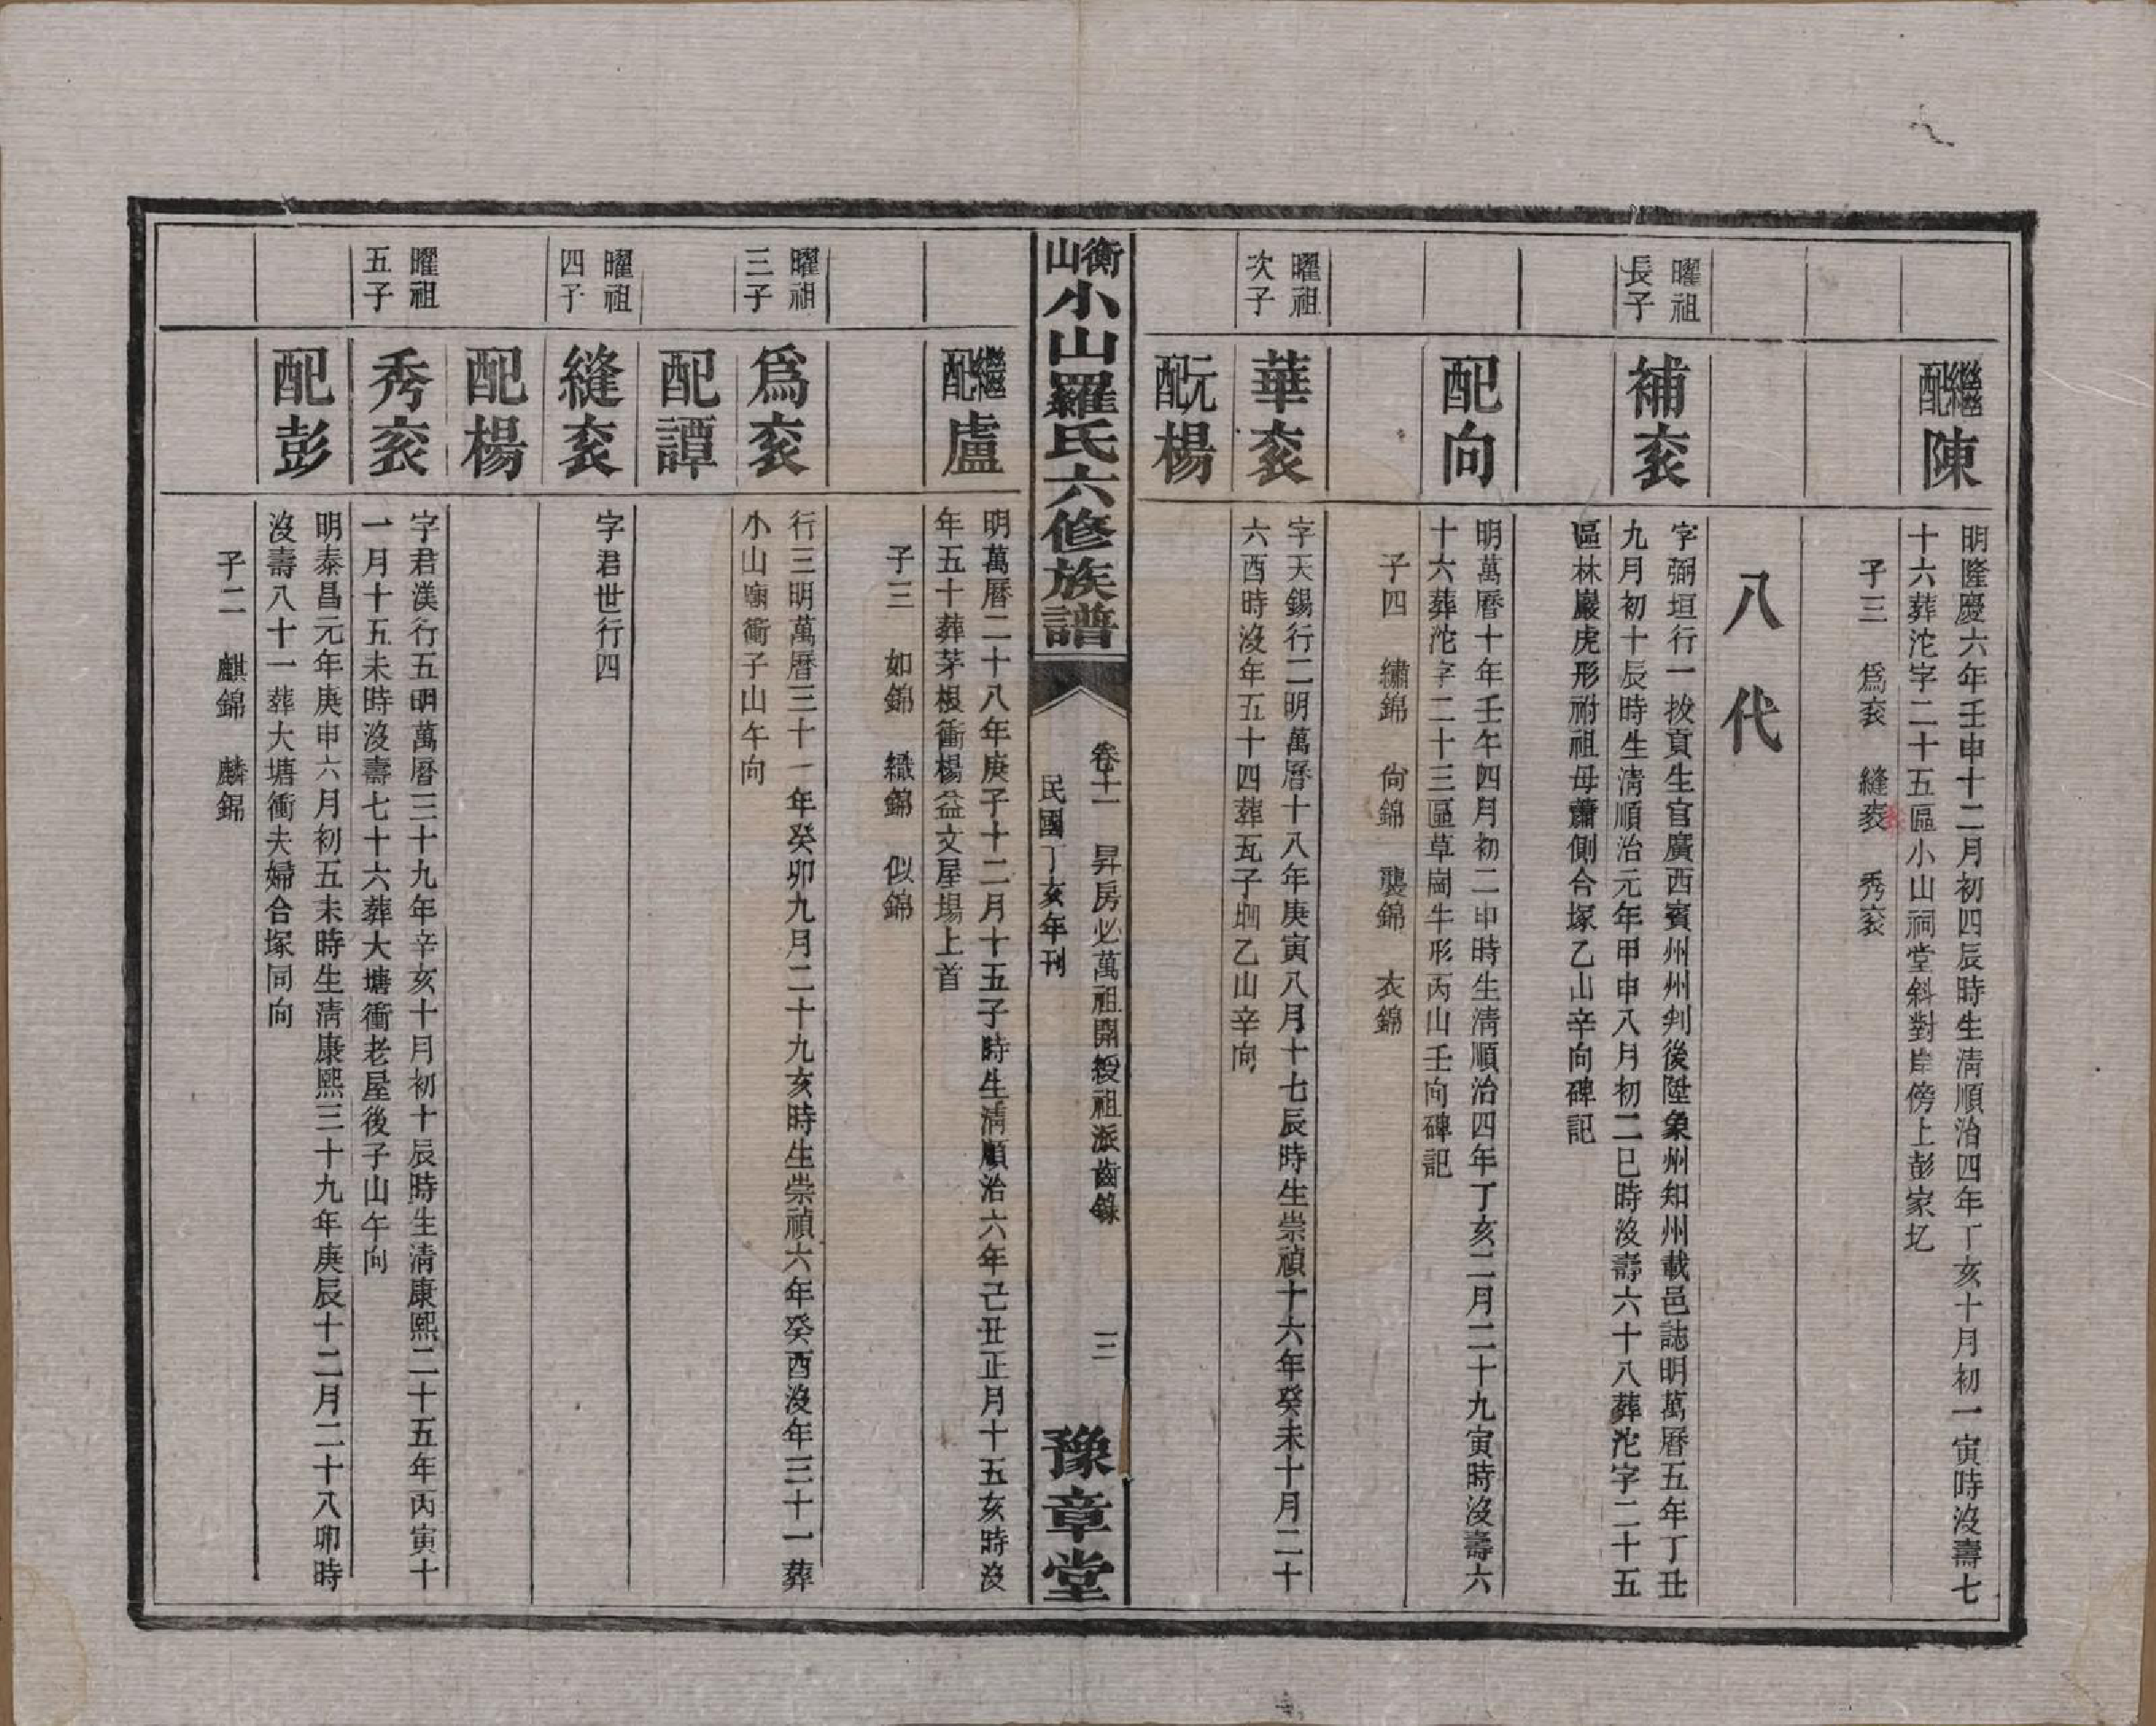 繼配陳
明隆慶六年壬申十二月初四辰時生清順治四年丁亥十月初一寅時沒壽七
十六葬沱字二十五區小山祠堂斜對岸傍上彭家圪
子三 爲衮 縫衮 秀衮
八代
曜祖
長子
補衮
字弼垣行一拔貢生官廣西賓州州判後陞象州知州載邑誌明萬曆五年丁丑
九月初十辰時生清順治元年甲申八月初二巳時沒壽六十八葬沱字二十五
區林巖虎形祔祖母蕭側合塚乙山辛向碑記
配向
明萬曆十年壬午四月初二申時生清順治四年丁亥二月二十九寅時沒壽六
十六葬沱字二十三區草崗牛形丙山壬向碑記
子四 繡錦 尙錦 襲錦 衣錦
曜祖
次子
華衮
字天錫行二明萬曆十八年庚寅八月十七辰時生崇禎十六年癸未十月二十
六酉時沒年五十四葬瓦子坰乙山辛向
元配楊
衡山小山羅氏六修族譜
卷十一 昇房必萬祖開綬祖派齒錄 三
民國丁亥年刊
豫章堂
繼配盧
明萬曆二十八年庚子十二月十五子時生清順治六年己丑正月十五亥時沒
年五十葬茅根衝楊益文屋場上首
子三 如錦 織錦 似錦
曜祖
三子
爲衮
行三明萬曆三十一年癸卯九月二十九亥時生崇禎六年癸酉沒年三十一葬
小山廟衝子山午向
配譚
曜祖
四子
縫衮
字君世行四
配楊
曜祖
五子
秀衮
字君渼行五明萬曆三十九年辛亥十月初十辰時生清康熙二十五年丙寅十
一月十五未時沒壽七十六葬大塘衝老屋後子山午向
配彭
明泰昌元年庚申六月初五未時生清康熙三十九年庚辰十二月二十八卯時
沒壽八十一葬大塘衝夫婦合塚同向
子二 麒錦 麟錦